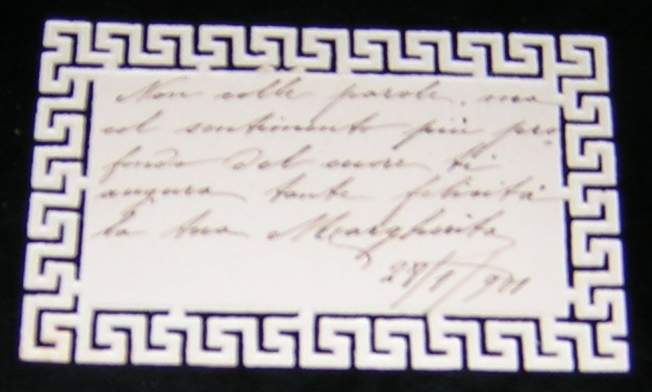 Non colle parole, ma
col sentimento più pro-
fondo del cuore ti
augura tante felicità
la tua Margherita
28/1/901